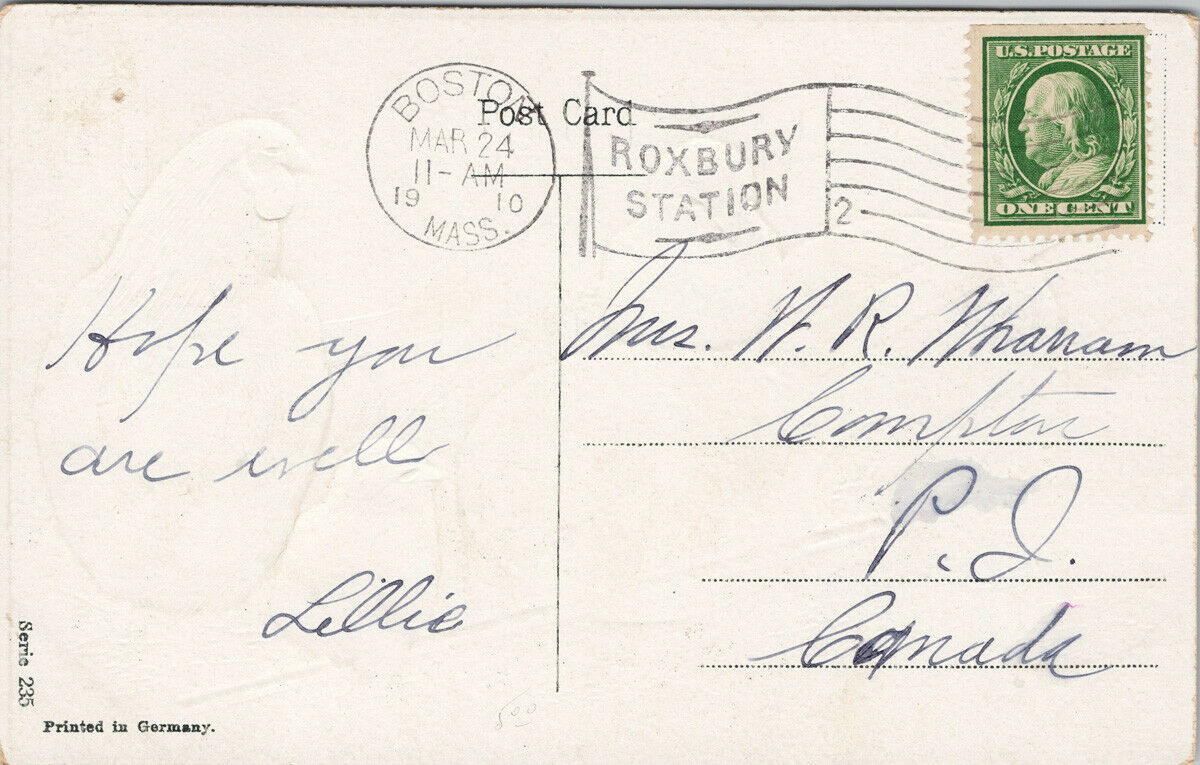 Post Card
BOSTON
MAR 24
11-AM
19 10
MASS.
ROXBURY
STATION
2
U.S. POSTAGE
ONE CENT
Hope you
are well
Lillie
Mrs. W. R.
Compton
P. I.
Canada
Serie 235
Printed in Germany.
5.00